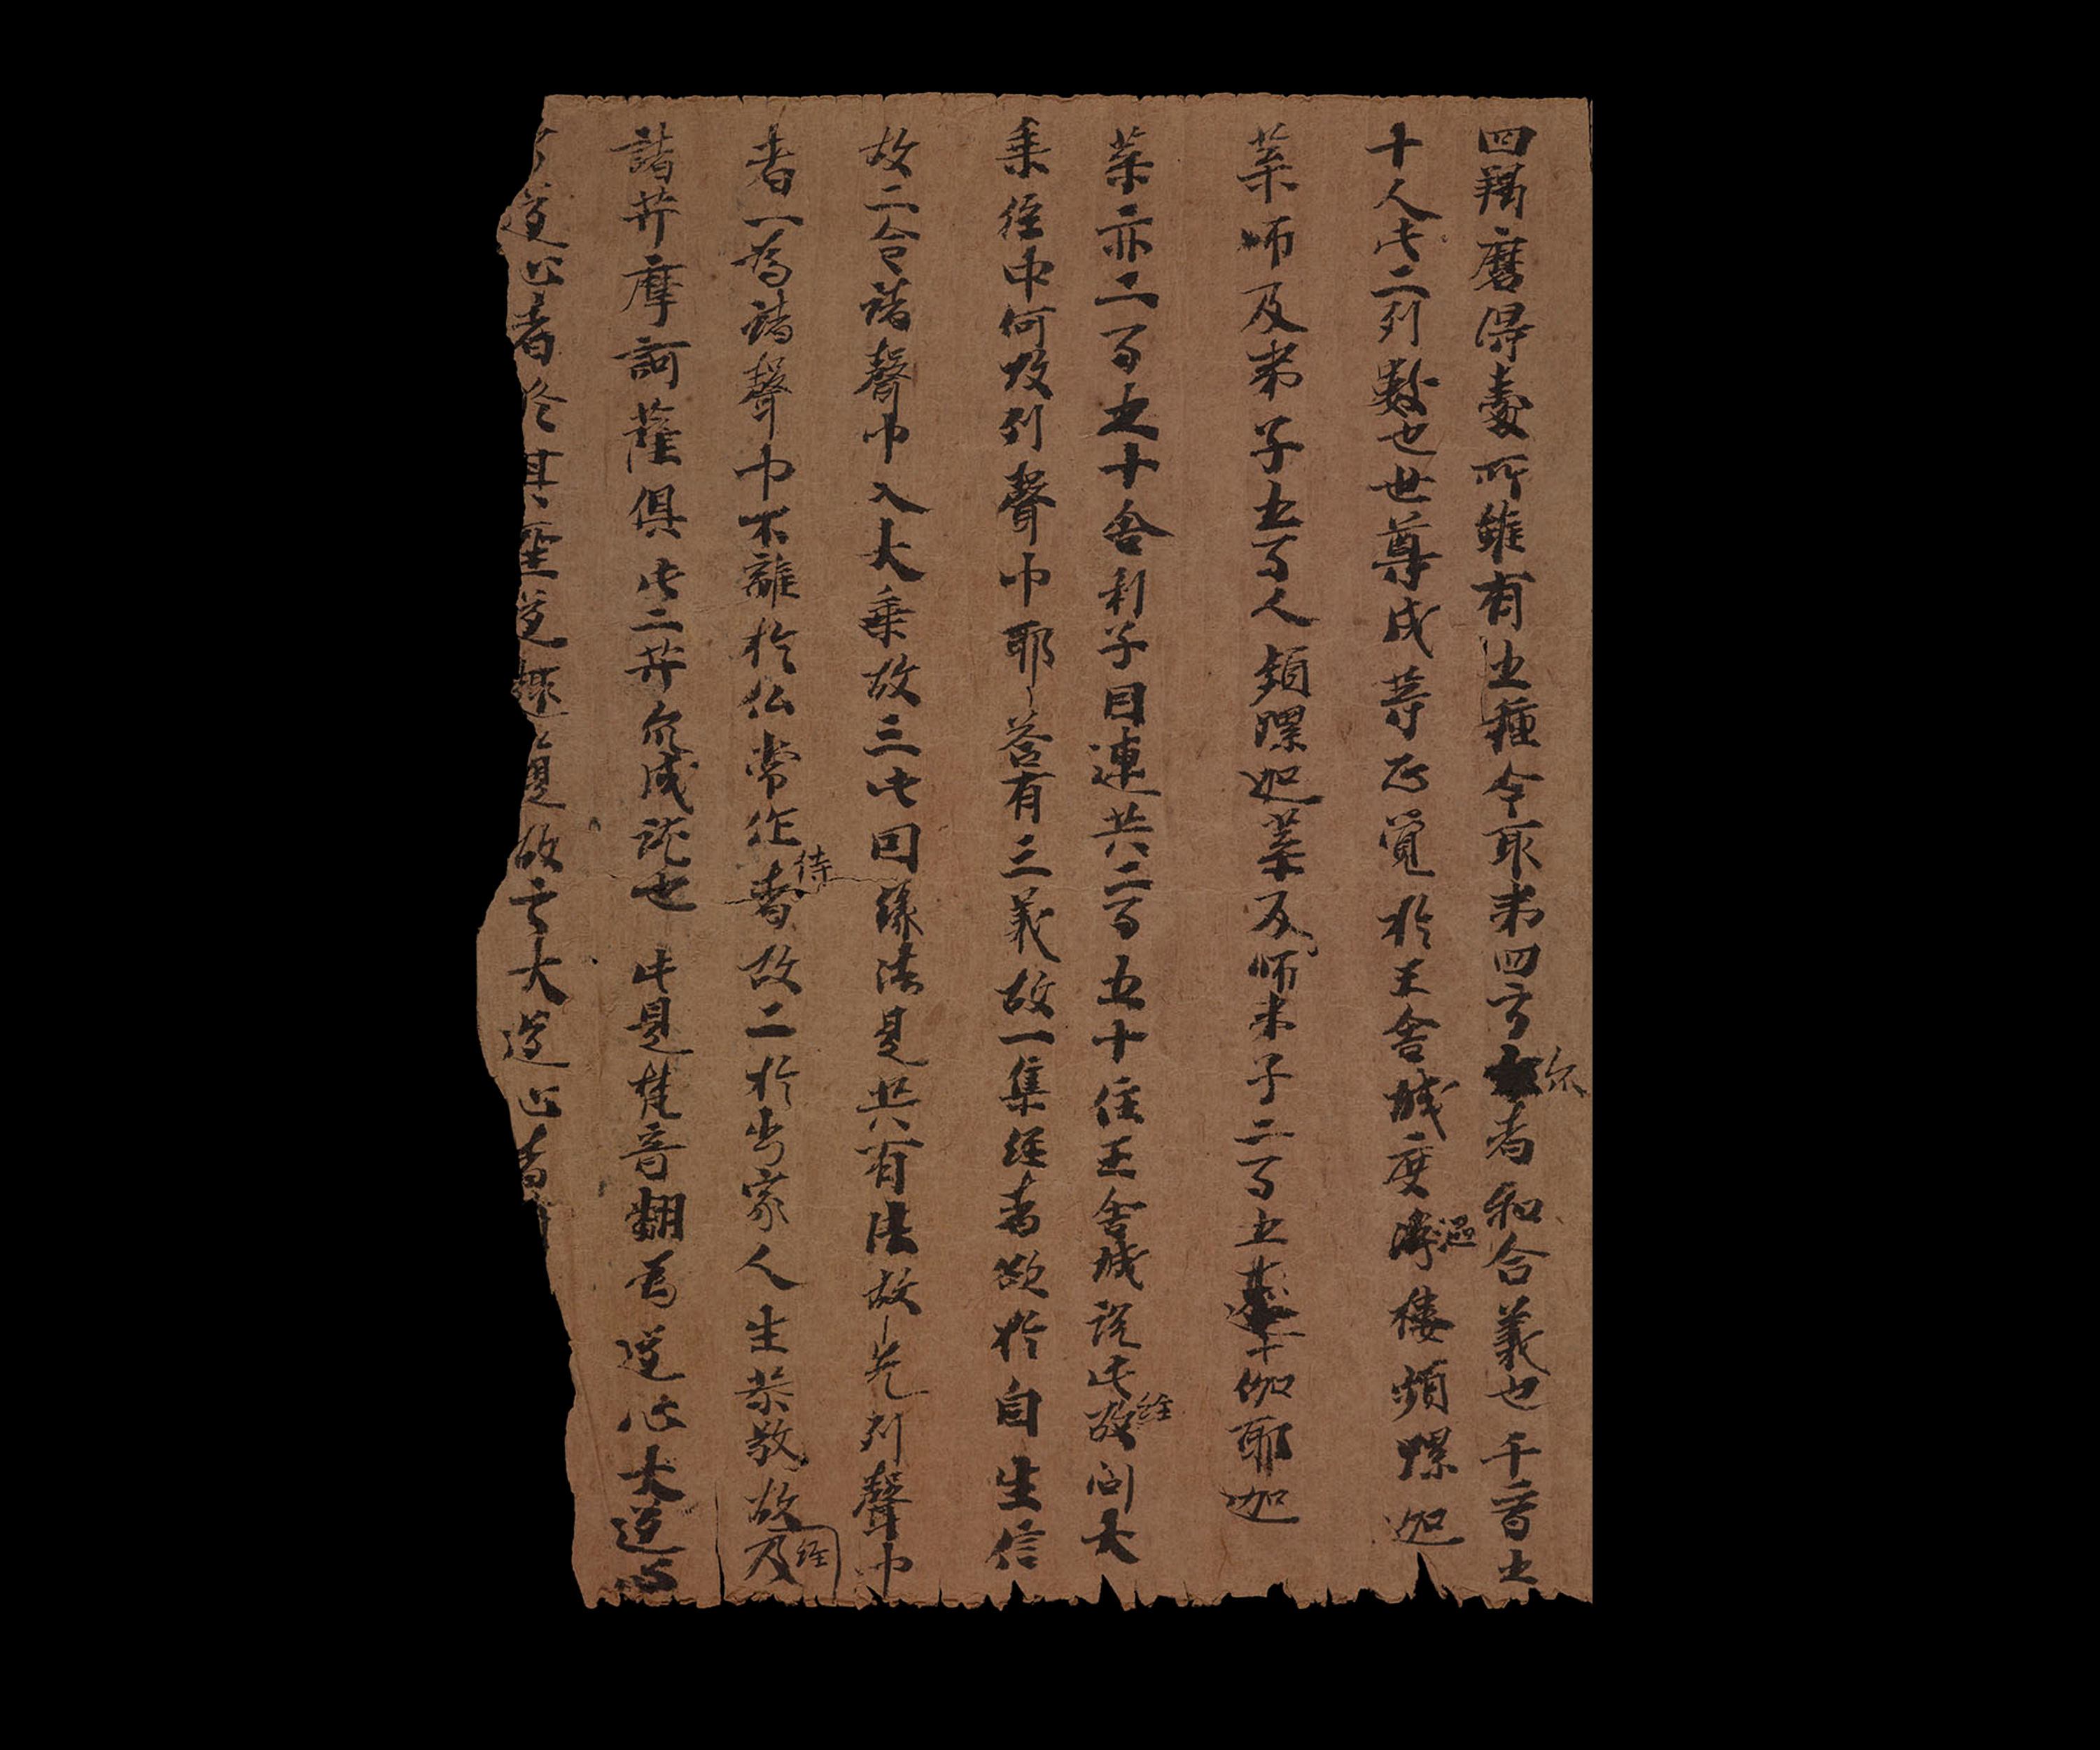 四羯磨得處所雖有五種今取弟四言尒者和合義也千二百五
十人此二列數也世尊成等正覺於王舍城度濕樓頻螺迦
葉師及弟子五百人頻螺迦葉及師弟子二百五十伽耶迦
葉亦二百五十舍利子目連共二百五十住王舍城說此經故問大
乗經中何故列聲巾耶答有三義故一集經者欲於自生信
故二令諸聲巾入大乗故三此因緣法是共有法故先列聲巾
者一為諸聲巾不離於仏常作侍者故二於出家人生恭敬故及
諸菩摩訶薩俱此二菩尒成就也此是梵音翻為道心大道心
道心者 座道 是故言大道心者